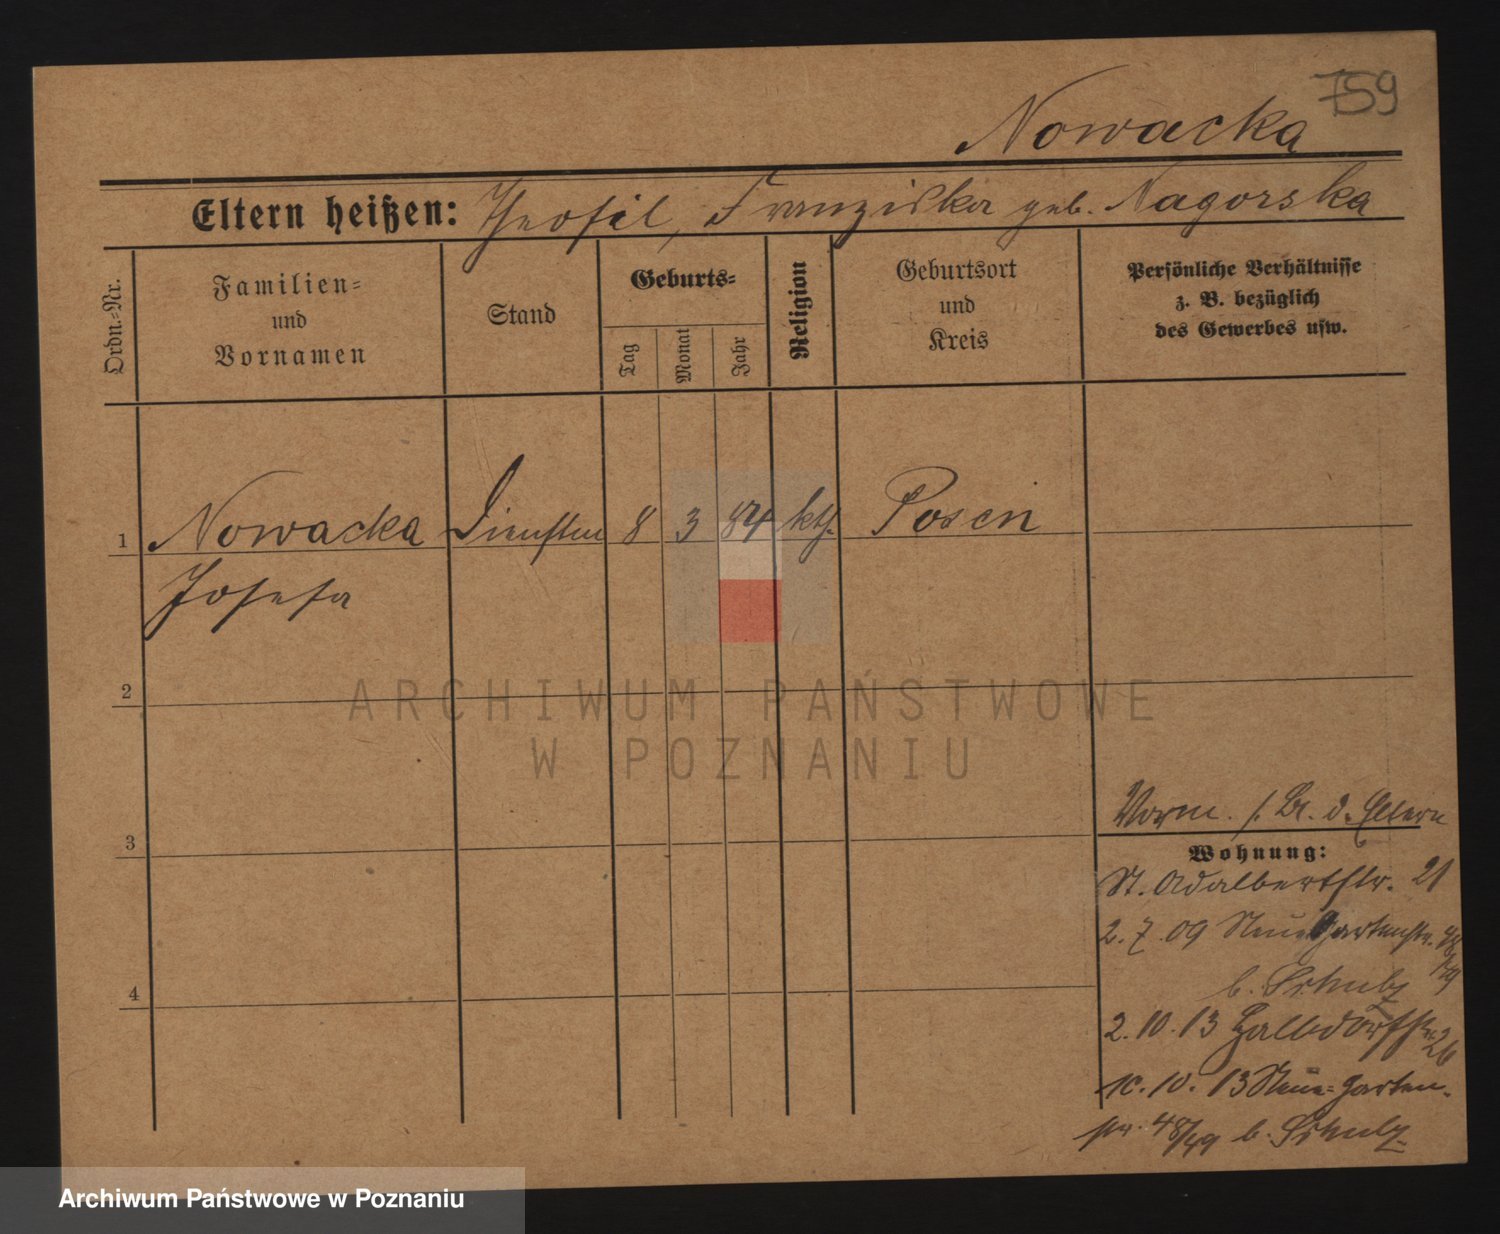 759
Nowacka
Eltern heißen: Theofil, Franziska geb. Nagorska
Ordn.-Nr.
Familien-
und
Vornamen
Stand
Geburts-
Tag
Monat
Jahr
Religion
Geburtsort
und
Kreis
Persönliche Verhältnisse
z. B. bezüglich
des Gewerbes usw.
1 Nowacka 8 3 84 kth. Posen
Josefa
2
3
4
Vorm. s. Bl. d. Eltern
Wohnung:
St. Adalbertstr. 21
2. 7. 09 Neue Gartenstr. 48/49
b. Schulz
2. 10. 13 Halbdorfstr. 26
10. 13 Neue-Garten-
str. 48/49 b. Schulz
ARCHIWUM PAŃSTWOWE
W POZNANIU
Archiwum Państwowe w Poznaniu